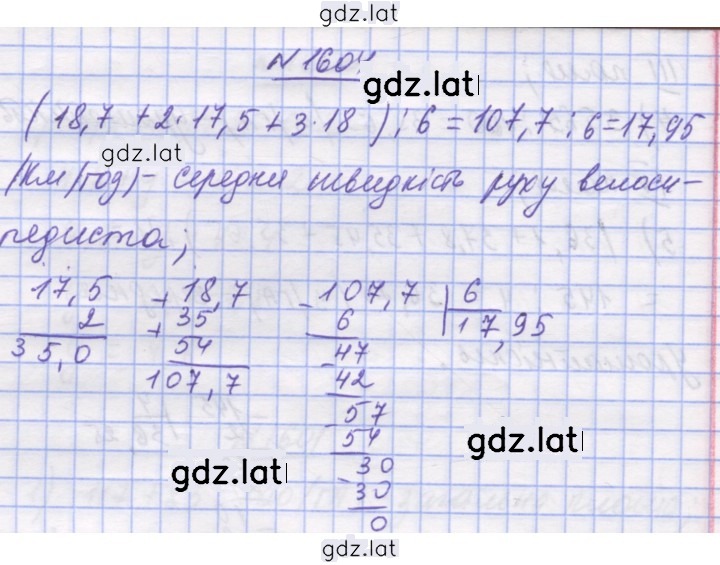 gdz.lat
№1604
gdz.lat
(18,7 + 2·17,5 + 3·18) : 6 = 107,7 : 6 = 17,95
gdz.lat
(км/год) - середня швидкість руху велоси-
педиста;
17,5
2
35,0
+ 18,7
+ 35
54
107,7
- 107,7 | 6
6 17,95
- 47
42
- 57
54
- 30
30
0
gdz.lat
gdz.lat
gdz.lat